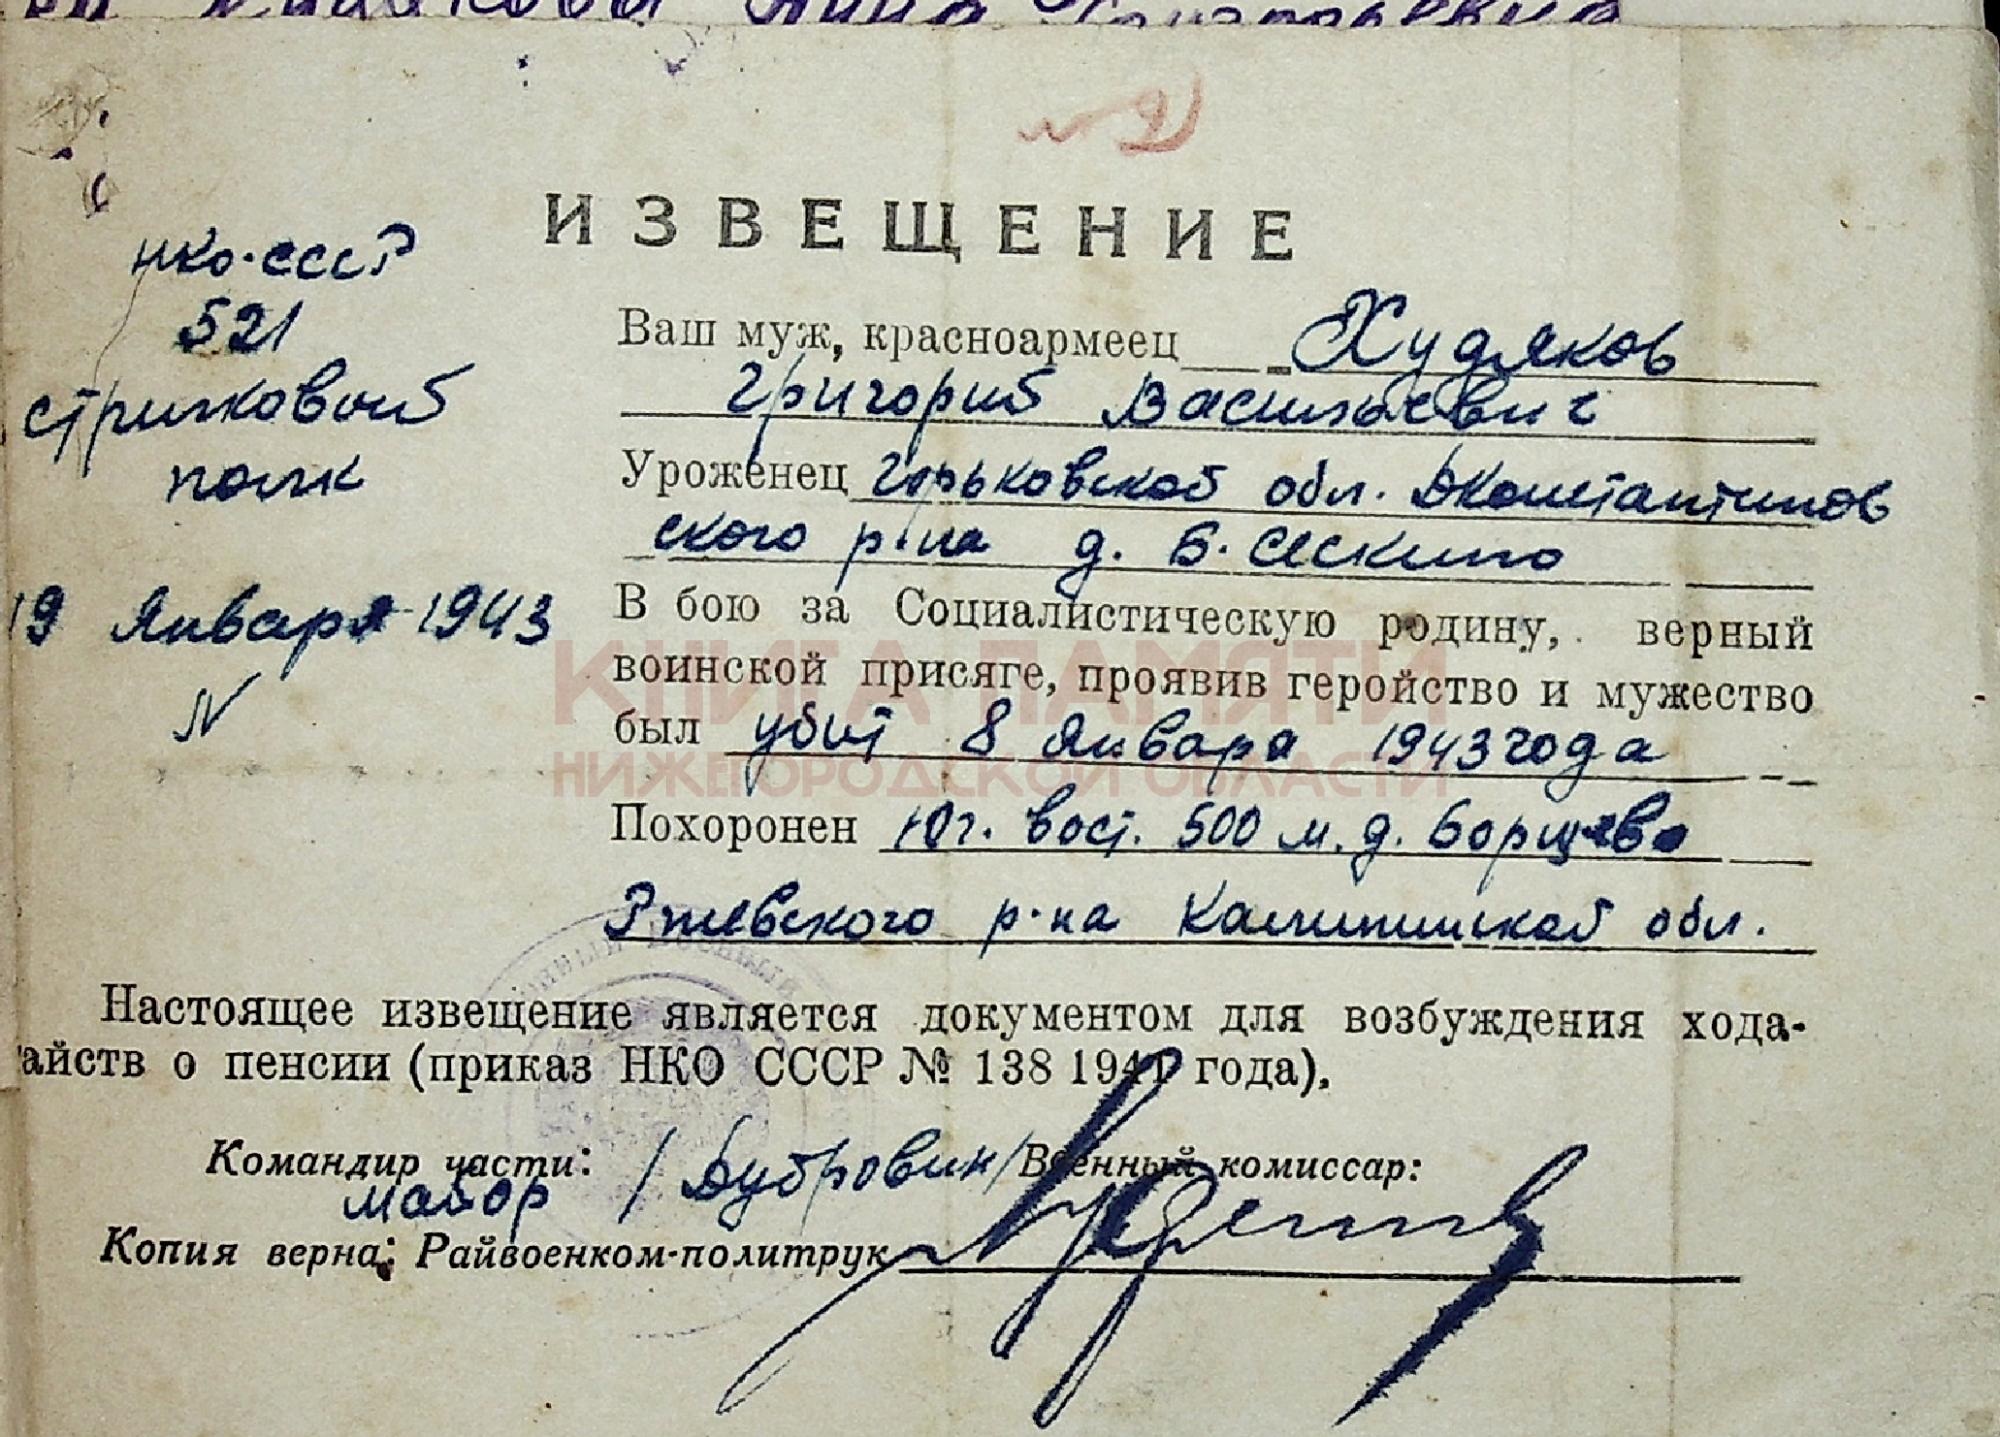 № 2)
ИЗВЕЩЕНИЕ
НКО-СССР
521
стрлковой
полк
19 Января 1943
N
Ваш муж, красноармеец Худяков
Григорий Васильевич
Уроженец Горьковской обл. Дконстантинов
ского р-на д. Б. Сескино
В бою за Социалистическую родину, верный
воинской присяге, проявив геройство и мужество
был убит 8 Января 1943 года
Похоронен Юг. вост. 500 м. д. Борщево
Ржевского р-на Калининской обл.
Настоящее извещение является документом для возбуждения хода-
тайств о пенсии (приказ НКО СССР № 138 1941 года).
Командир части: Военный комиссар:
майор / Дубровин /
Копия верна: Райвоенком-политрук
КНИГА ПАМЯТИ
НИЖЕГОРОДСКОЙ ОБЛАСТИ